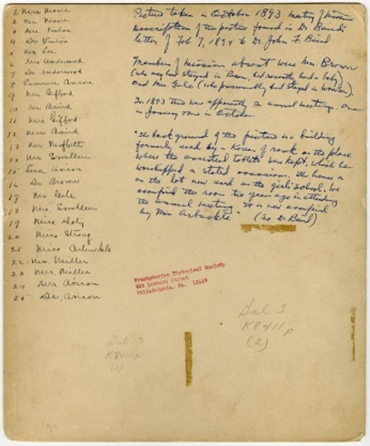 1 Mrs. Moore
2 Mr. Moore
3 Mrs. Vinton
4 Dr. Vinton
5 Mr. Lee
6 Mrs. Underwood
7 Dr. Underwood
8
9 Mr. Gifford
10 Mr. Baird
11 Mrs. Gifford
12 Mrs. Baird
13 Mr. Moffett
14 Mr. Swallen
15
16 Dr. Brown
17 Mrs. Gale
18 Mrs. Swallen
19 Miss Doty
20 Miss Strong
21 Miss Arbuckle
22 Mr. Miller
23 Mrs. Miller
24 Mrs. Avison
25 Dr. Avison
Picture taken in October 1893 meeting of Mission
Description of the picture found in Dr. Baird's
letter of Feb 7, 1894 to Dr. John F. Baird
Members of Mission absent were Mrs. Brown
(who may have stayed in Seoul, but recently had a baby)
and Mr. Gale (who presumably had stayed in Wonsan).
In 1893 there were apparently two annual meetings, one
in January one in October
"The background of the picture is a building
formerly used by a Korean of rank as the place
where the ancestral tablets were kept, which he
worshipped on stated occasions. The house is
on the lot now used as the girls' school. We
occupied the room two years ago in attending
the annual meeting. It is now occupied
by Miss Arbuckle" (so Dr. Baird)
Presbyterian Historical Society
425 Lombard Street
Philadelphia, Pa. 19147
Gal. 3
K8411p
(2)
Gal. 3
K8411p
(2)